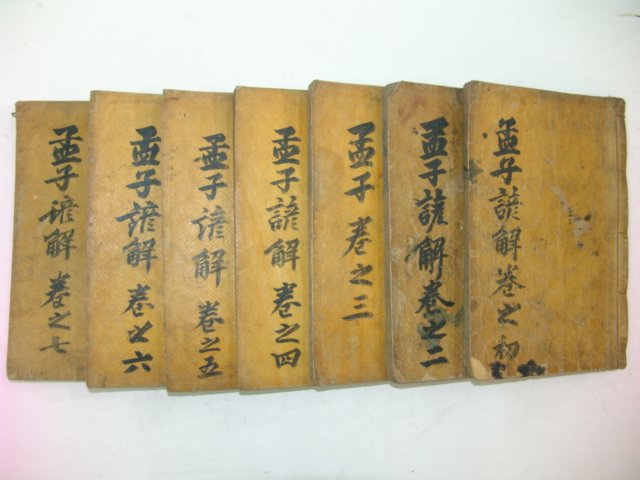 孟子諺解卷之初
孟子諺解卷之二
孟子卷之三
孟子諺解卷之四
孟子諺解卷之五
孟子諺解卷之六
孟子諺解卷之七